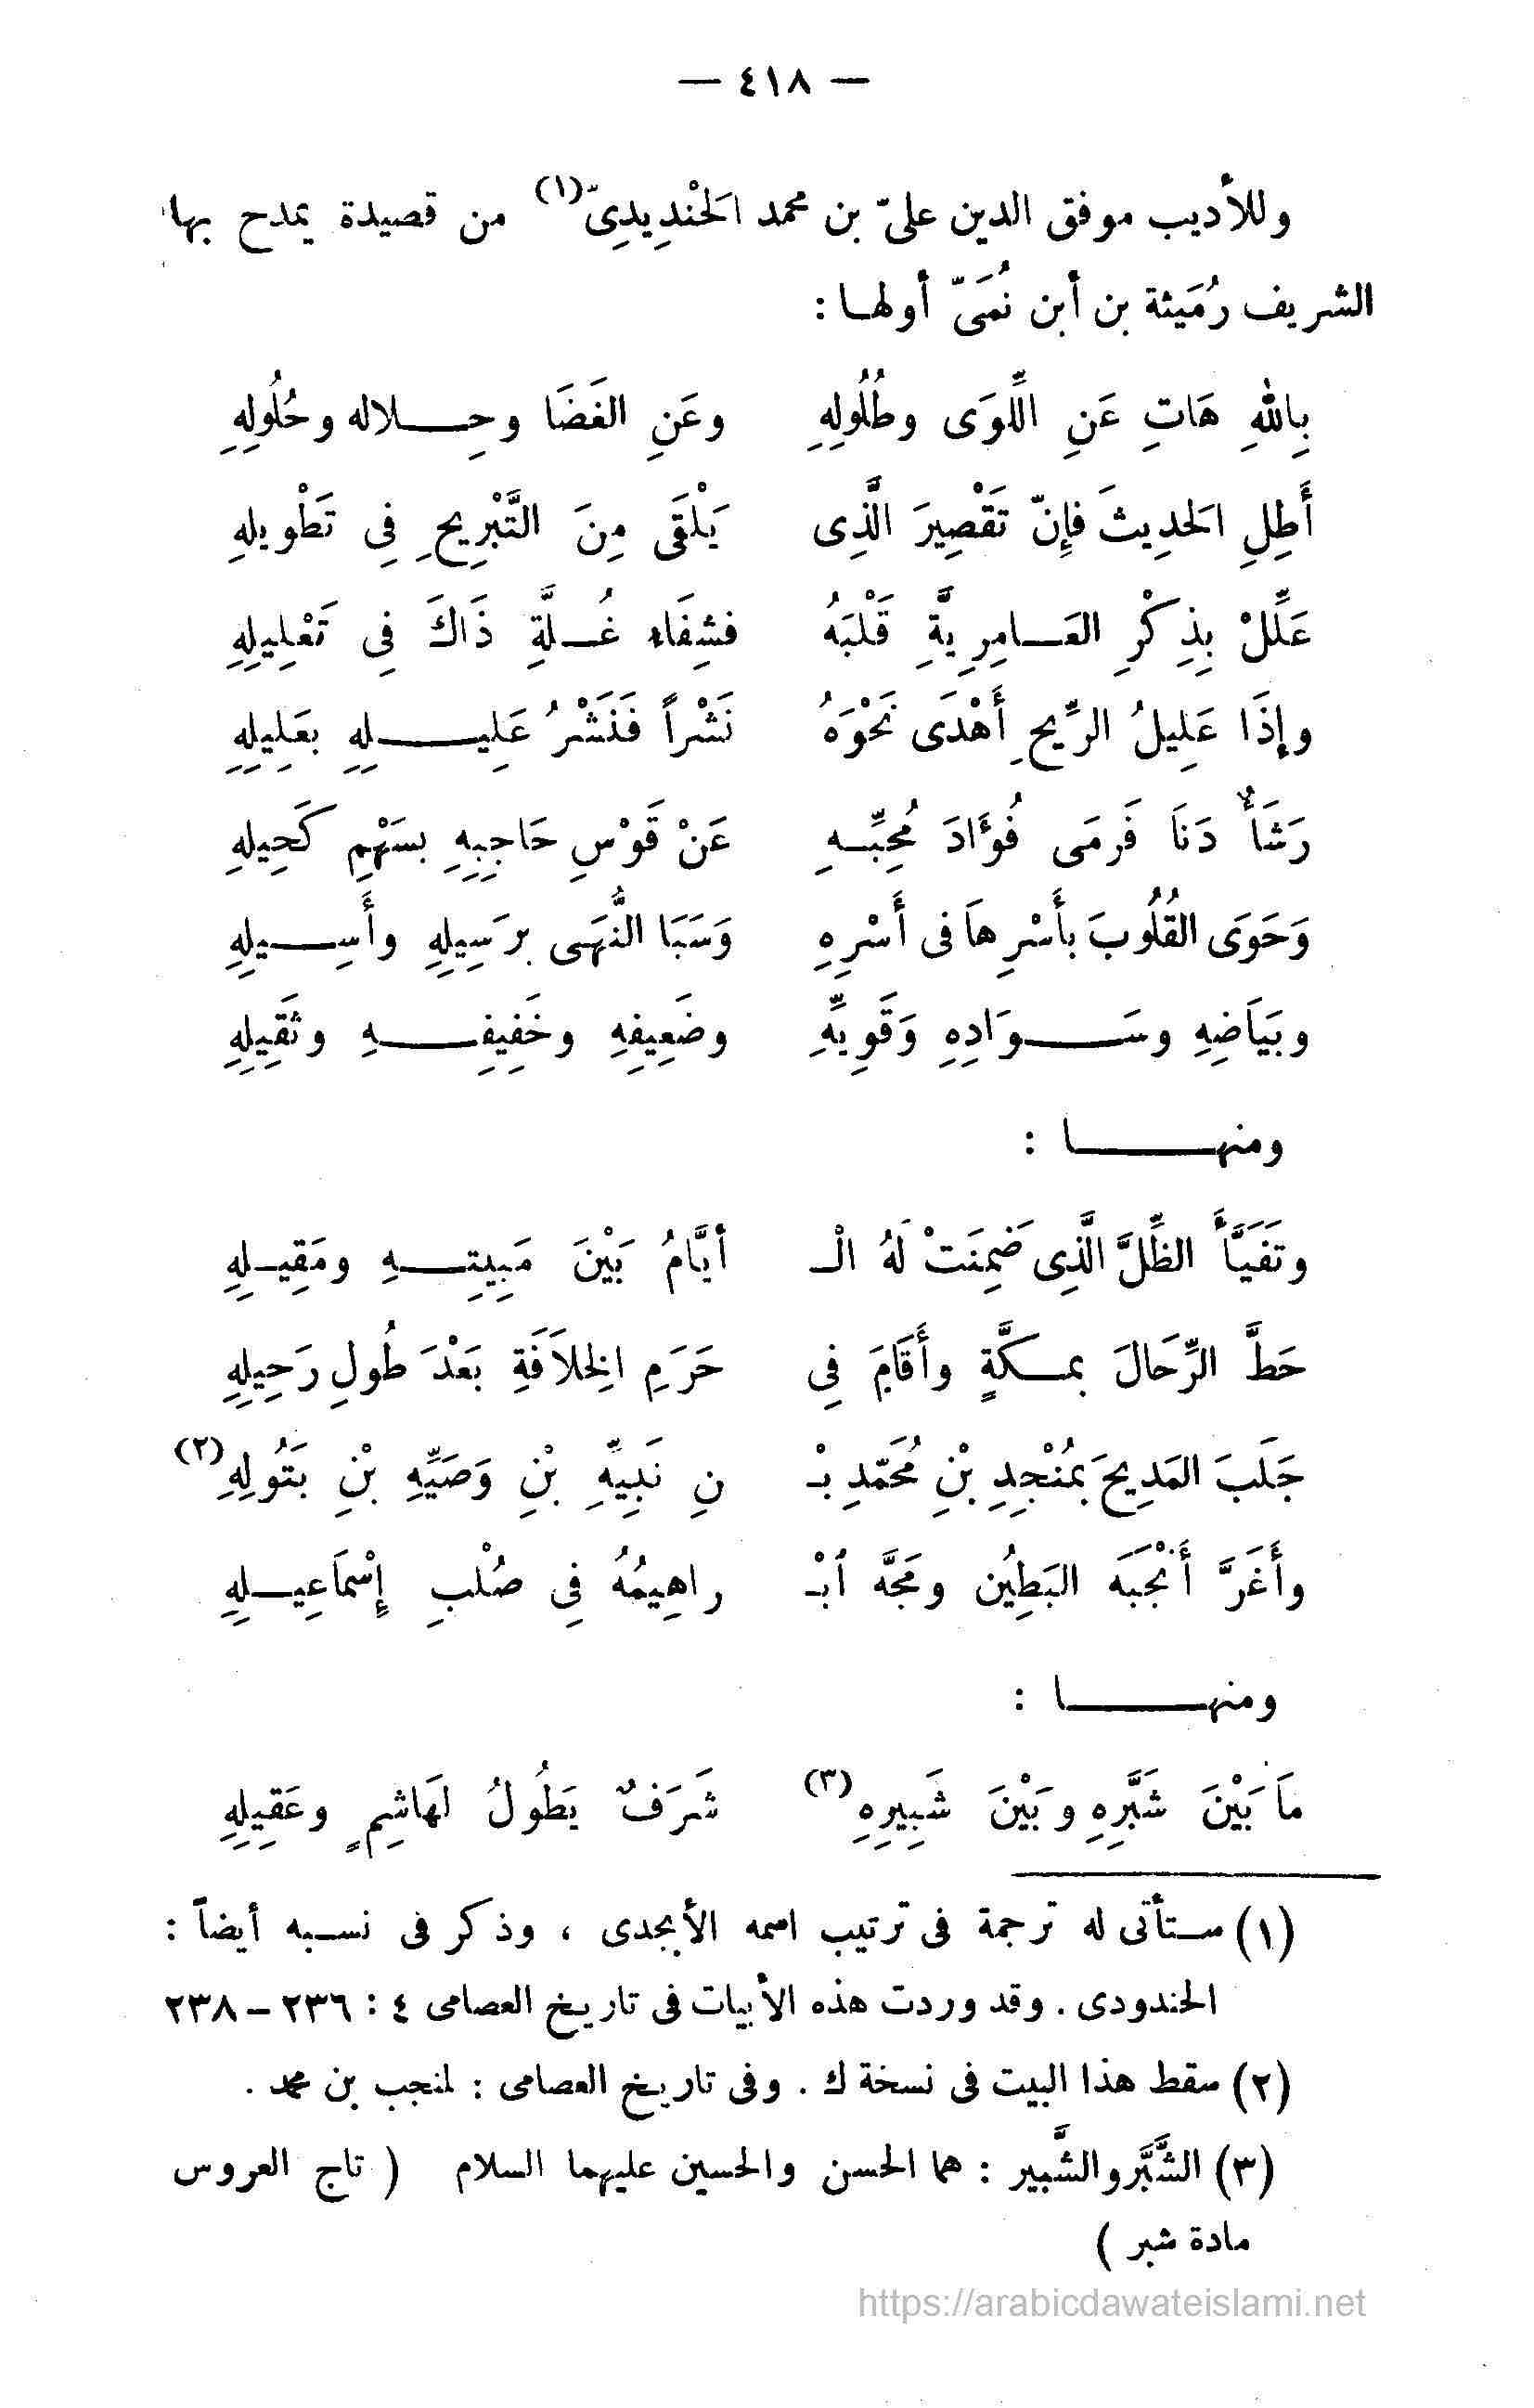 — ٤١٨ —
وللأديب موفق الدين علىّ بن محمد الحَنْدِيدِىّ(١) من قصيدة يمدح بها
الشريف رُمَيثة بن أبن نُمَىّ أولهـا :
بِاللهِ هَاتِ عَنِ اللِّوَى وطُلُولِهِ وعَنِ الغَضَا وحِـلاله وحُلُولِهِ
أَطِلِ الحَدِيثَ فإِنّ تَقْصِيرَ الَّذِى يَلْقَى مِنَ التَّبْرِيحِ فِى تَطْويلِهِ
عَلِّلْ بِذِكْرِ العَـامِرِيَّةِ قَلْبَهُ فشِفَاء غُـلَّةِ ذَاكَ فِى تَعْلِيلِهِ
وإذَا عَلِيلُ الرِّيحِ أَهْدَى نَحْوَهُ نَشْراً فَنَشْرُ عَلِيـلِهِ بعَلِيلِهِ
رَشَأٌ دَنَا فَرمَى فُؤَادَ مُحِبِّـهِ عَنْ قَوْسِ حَاجِبِهِ بسَهْمِ كَحِيلِهِ
وَحَوَى القُلُوبَ بأَسْرِهَا فى أَسْرِهِ وَسَبَا النُّهَى برَسِيلِهِ وأَسِـيلِهِ
وبَيَاضِهِ وسَـوَادِهِ وَقَوِيِّهِ وضَعِيفِهِ وخَفِيفِـهِ وثَقِيلِهِ
ومنهـا :
وتَفَيَّأَ الظِّلَّ الَّذِى ضَمِنَتْ لَهُ الْـ أيَّامُ بَيْنَ مَبِيتِـهِ ومَقِيـلِهِ
حَطَّ الرِّحَالَ بمـكَّةٍ وأَقَامَ فِى حَرَمِ الخِلَافَةِ بَعْدَ طُولِ رَحِيلِهِ
جَلَبَ المَدِيحَ بمُنْجِدِ بْنِ مُحَمّدِ بْـ نِ نَبِيِّهِ بْنِ وَصَيِّهِ بْنِ بَتُولِهِ(٢)
وأَغَرَّ أَنْجَبَهَ البَطِين ومَجَّه ٱبْـ راهِيمُهُ فِى صُلْبِ إِسْمَاعِيـلِهِ
ومنهـا :
مَا بَيْنَ شَبَّرِهِ وبَيْنَ شَبِيرِهِ(٣) شَرَفٌ يَطُولُ لهَاشِمٍ وعَقِيلِهِ
(١) ستـأتى له ترجمة فى ترتيب اسمه الأبجدى ، وذكر فى نسـبه أيضاً :
الحندودى . وقد وردت هذه الأبيات فى تاريخ العصامى ٤ : ٢٣٦ – ٢٣٨
(٢) سقط هذا البيت فى نسخة ك . وفى تاريخ العصامى : لمنجب بن محمد .
(٣) الشَّبَّر والشَّبير : هما الحسن والحسين عليهما السلام ( تاج العروس
مادة شبر )
https://arabicdawateislami.net